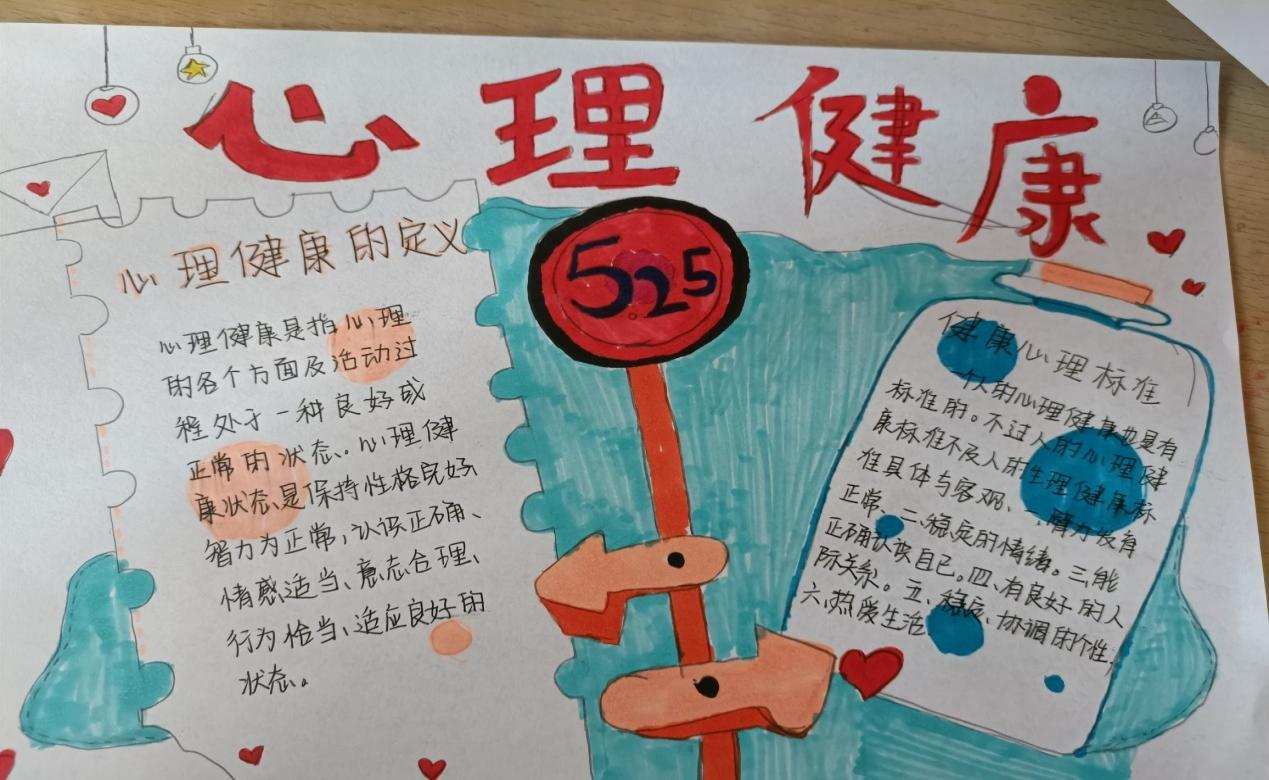 心理健康
心理健康的定义
心理健康是指心理
的各个方面及活动过
程处于一种良好或
正常的状态。心理健
康状态是保持性格完好
智力为正常,认识正确、
情感适当、意态合理、
行为恰当、适应良好的
状态。
525
健康心理标准
一个人的心理健康也是有
标准的。不过人的心理健
康标准不及人的生理健康标
准具体与客观、一、智力发育
正常、二、稳定的情绪。三、能
正确认识自己。四、有良好的人
际关系。五、稳定、协调的个性;
六、热爱生活